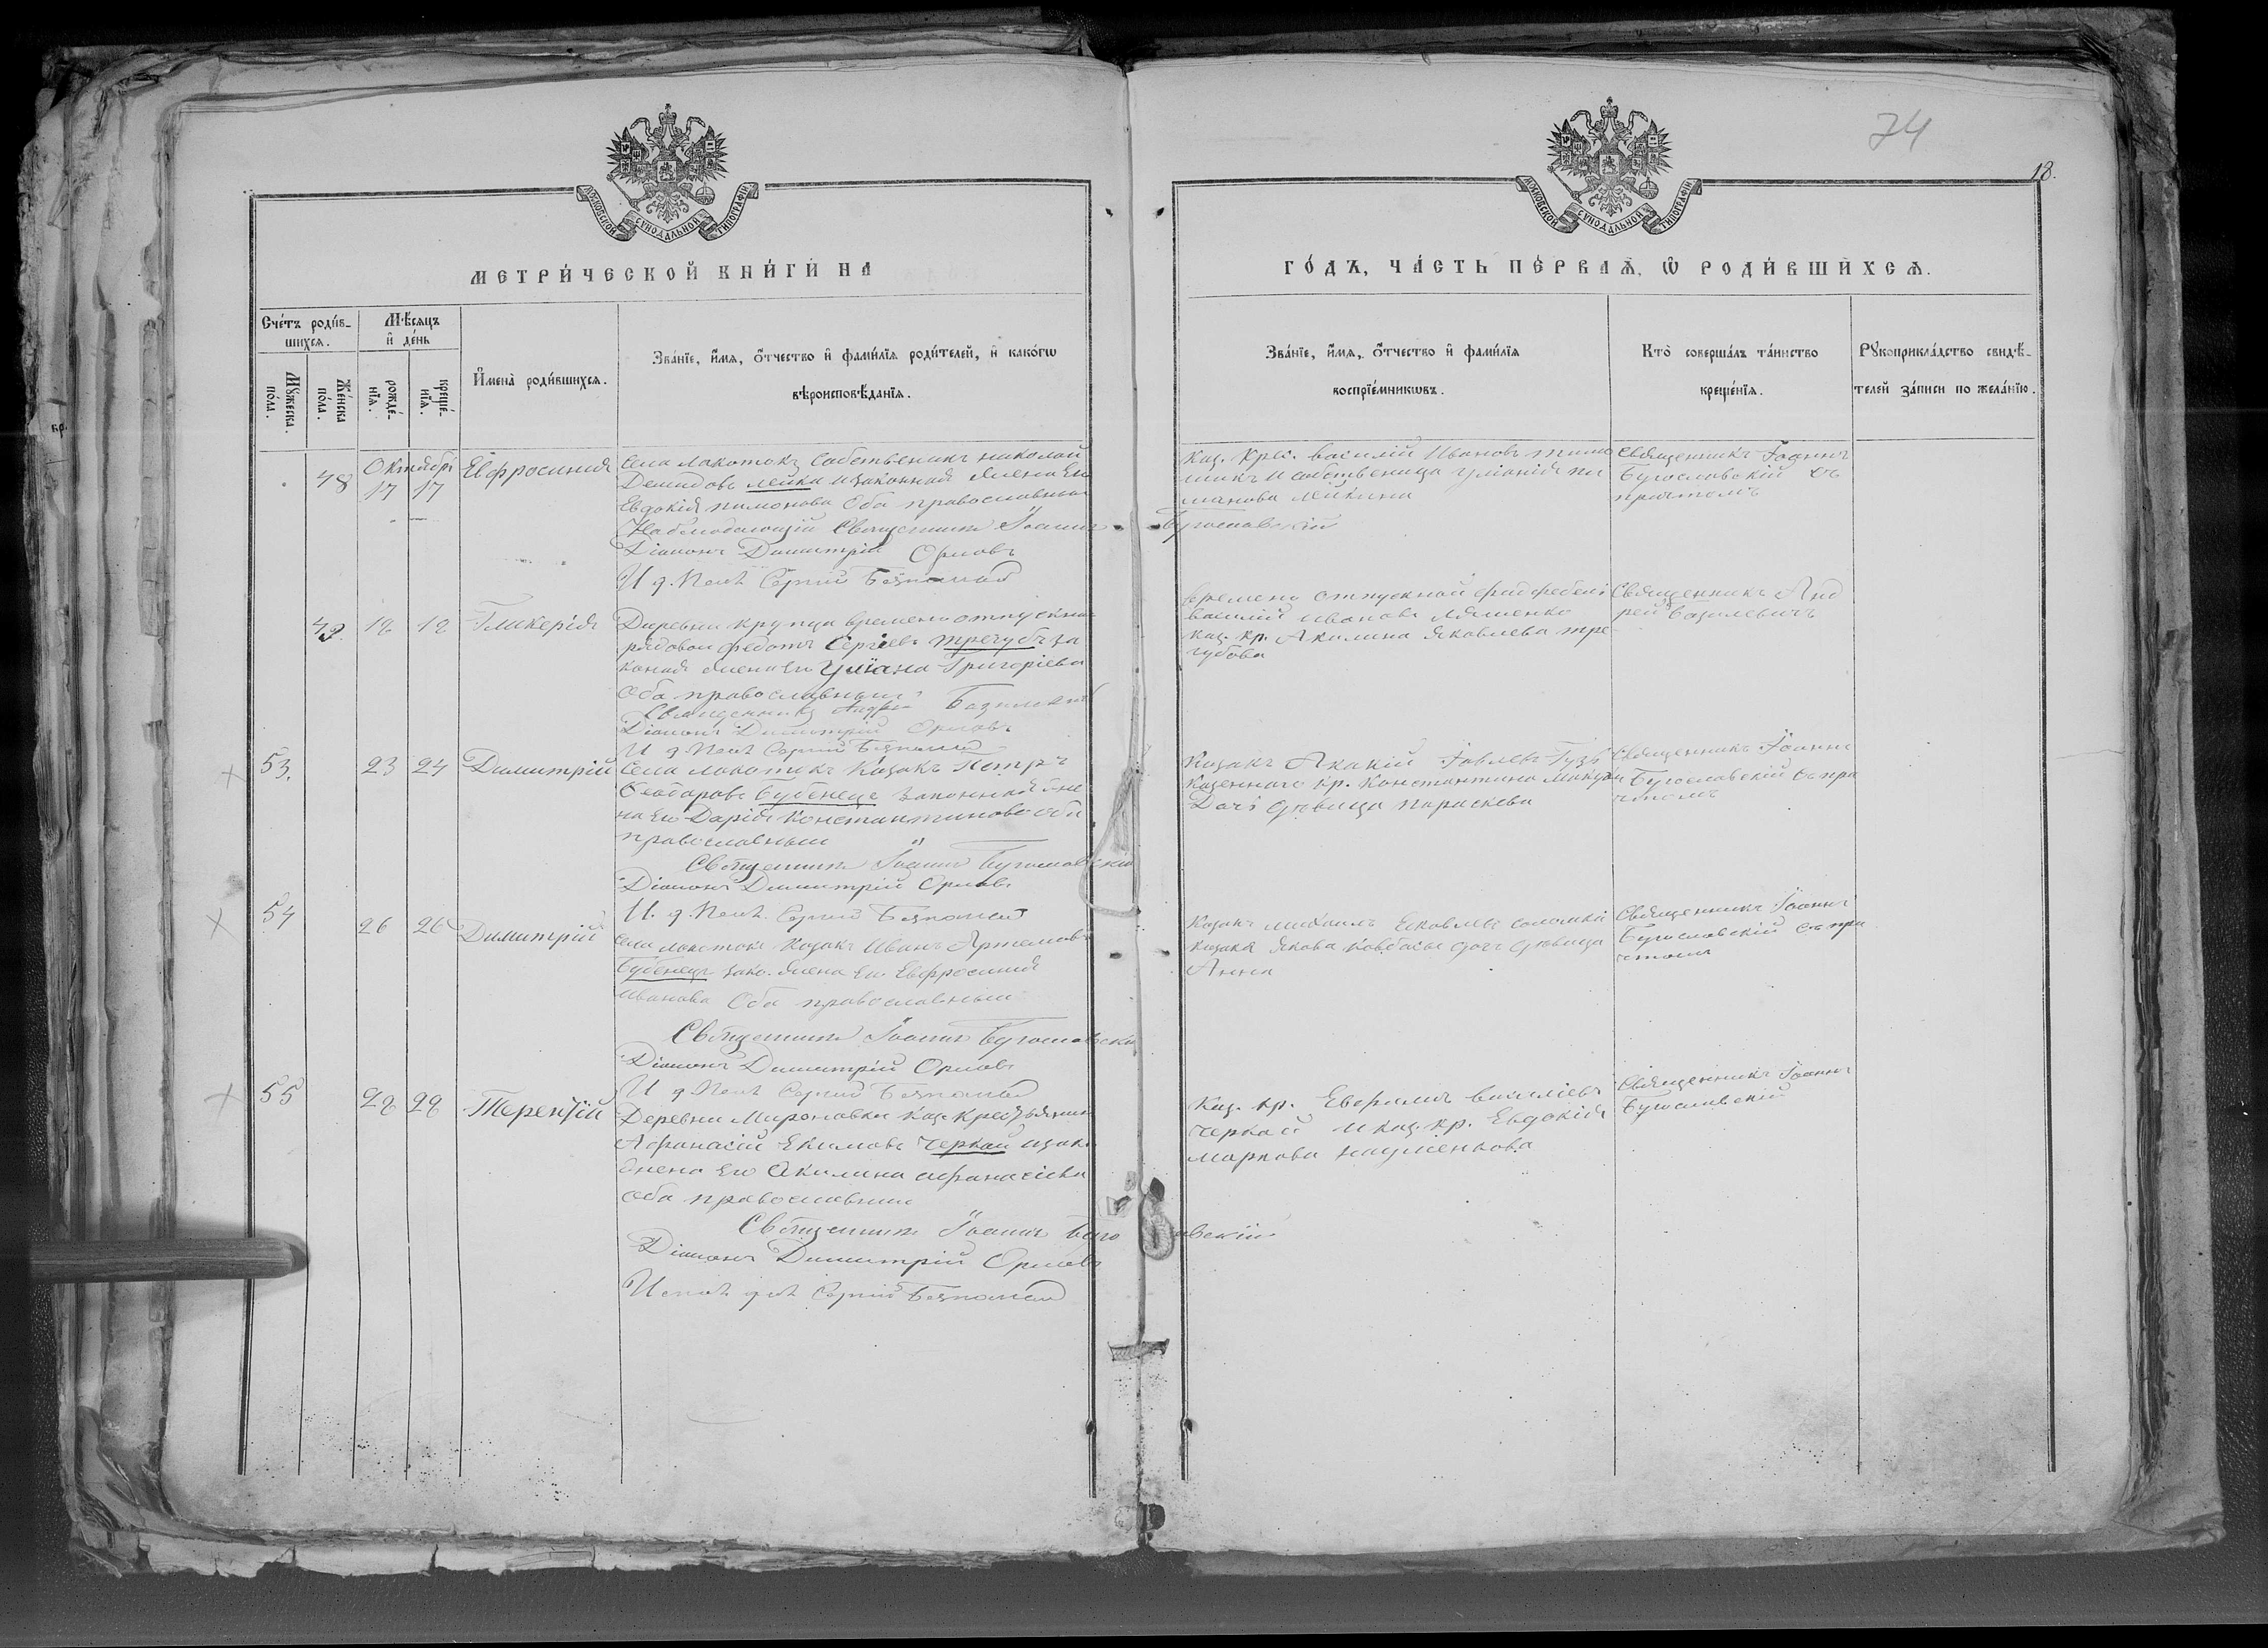 74
18.
МОСКОВСКОЙ СУНОДАЛЬНОЙ ТИПОГРАФІИ
МОСКОВСКОЙ СУНОДАЛЬНОЙ ТИПОГРАФІИ
МЕТРИ́ЧЕСКОЙ КНИ́ГИ НА
ГО́ДЪ, ЧА́СТЬ ПЕ́РВАѦ, Ѿ РОДИ́ВШИХСѦ.
Сче́тъ роди́в-
шихсѧ.
Мꙋ́жеска по́ла.
Же́нска по́ла.
Мѣ́сѧцъ
и҆ де́нь
рожде́-
нїѧ.
креще́-
нїѧ.
И҆мена̀ роди́вшихсѧ.
Зва́нїе, и҆́мѧ, ѻ҆́тчество и҆ фами́лїѧ роди́телей, и҆ како́гѡ
вѣроисповѣ́данїѧ.
Зва́нїе, и҆́мѧ, ѻ҆́тчество и҆ фами́лїѧ
воспрїе́мникѡвъ.
Кто̀ соверша́лъ та́инство
креще́нїѧ.
Рꙋкоприкла́дство свидѣ́-
телей за́писи по жела́нїю.
48
Октября
17 17
Евфросинія
Села Локотокъ Собственикъ николай
Демидовъ лейка и законная жена Ею
Евдокія пимонова Оба православныи
Наблюдающій Священникъ Іоаннъ Бугославскій
Діаконъ Димитрій Орловъ
И д. Псал Сергій
Каз. Крес. василій Ивановъ
и собственица Уліанія
манова лейкина
Священникъ Іоаннъ
Бугославскій съ
причтомъ
49. 18 18 Гликерія
Деревни Крупца времено отпускни-
рядовой федотъ Сергіевъ Трегубъ за
коная жена Ею Уліана Григоріева
Оба православныи
Священникъ Андрей Базилевичъ
Діаконъ Димитрій Орловъ
И д Псал Сергій
времено отпускной
василій ивановъ Ляшенко
каз. кр. Акилина Яковлева тре-
губова
Священникъ Анд
рей Базилевичъ
53. 23 24 Димитрій
Села локотокъ Козакъ Петръ
Феодоровъ Бубенецъ законная же
на Ею Дарія Константинова оба
православныи
Священникъ Іоаннъ Бугославскій
Діаконъ Димитрій Орловъ
И. д. Псал. Сергій
Козакъ Акакій Іовлевъ Гузь
Казенного кр. Константина
дочь дѣвица Параскева
Священникъ Іоаннъ
Бугославскій съ при
чтомъ
54 26 26 Димитрій
Села локотокъ Козакъ Иванъ Артемовъ
Бубенецъ зако. жена Ею Евфросинія
Иванова Оба православныи
Священникъ Іоаннъ Бугославскій
Діаконъ Димитрій Орловъ
И д Псал Сергій
Козакъ михаилъ Яковлевъ
Козака Якова Ковбасы дочь дѣвица
Анна
Священникъ Іоаннъ
Бугославскій съ при
чтомъ
55 28 28 Терентій
Деревни Мироновки Каз. Крестьянинъ
Афанасій Екимовъ Черкай и зако
жена Ею Акилина афанасіева
оба православныи
Священникъ Іоаннъ Бугославскій
Діаконъ Димитрій Орловъ
Сергій
Каз. кр. Евфимъ василіевъ
черкай и каз. кр. Евдокія
маркова науменкова
Священникъ Іоаннъ
Бугославскій